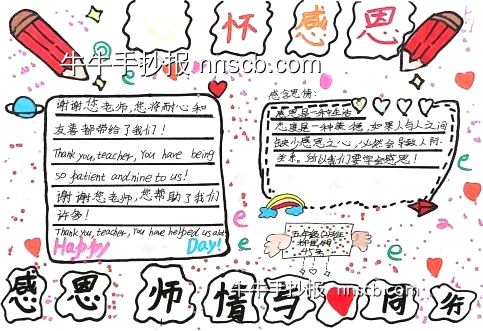 怀感恩
牛牛手抄报 nnscb.com
谢谢您老师,您将耐心和
友善都带给了我们!
Thank you, teacher, You have being
so patient and nine to us!
谢谢您老师,您帮助了我们
许多!
Thank you, teacher, You have helped us alot
Happy Day!
感念恩情:
感恩是一种
态度是一种美德,如果人与人之间
缺少感恩之心,必然会导致人际
关系。所以我们要学会感恩!
五年级
45号
感恩师情与♥同行
牛牛手抄报 nnscb.com